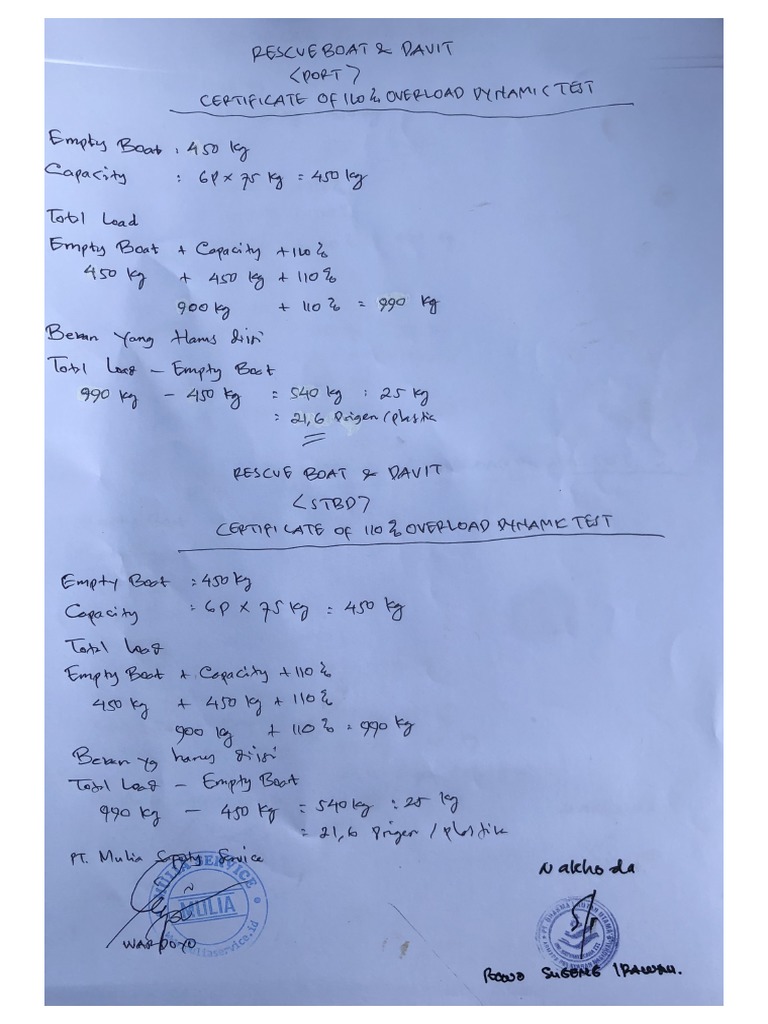 RESCUE BOAT & DAVIT
<PORT>
CERTIFICATE OF 110% OVERLOAD DYNAMIC TEST
Empty Boat : 450 kg
Capacity : 6P x 75 kg = 450 kg
Total Load
Empty Boat + Capacity + 110%
450 kg + 450 kg + 110%
900 kg + 110% = 990 kg
Beban yang Harus diisi
Total Load - Empty Boat
990 kg - 450 kg = 540 kg : 25 kg
= 21,6 Drigen/plastik
RESCUE BOAT & DAVIT
<STBD>
CERTIFICATE OF 110% OVERLOAD DYNAMIC TEST
Empty Boat : 450 kg
Capacity : 6P X 75 kg = 450 kg
Total Load
Empty Boat + Capacity + 110%
450 kg + 450 kg + 110%
900 kg + 110% = 990 kg
Beban yg harus diisi
Total Load - Empty Boat
990 kg - 450 kg = 540 kg : 25 kg
= 21,6 Drigen / plastik
PT. Mulia Safety Service
MULIA SERVICE
MULIA
muliaservice.id
WARDOYO
Nakhoda
SUGENG IRAWAN.